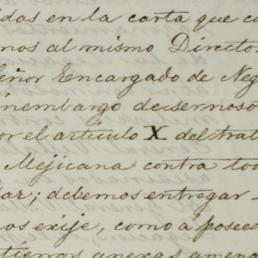 idas en la carta que c
mos al mismo Directo
eñor Encargado de Neg
inembargo de sernos o
or el artículo X del trat
Mejicana contra too
lar; debemos entregar
os exije, como á posee
tierras anexas amena